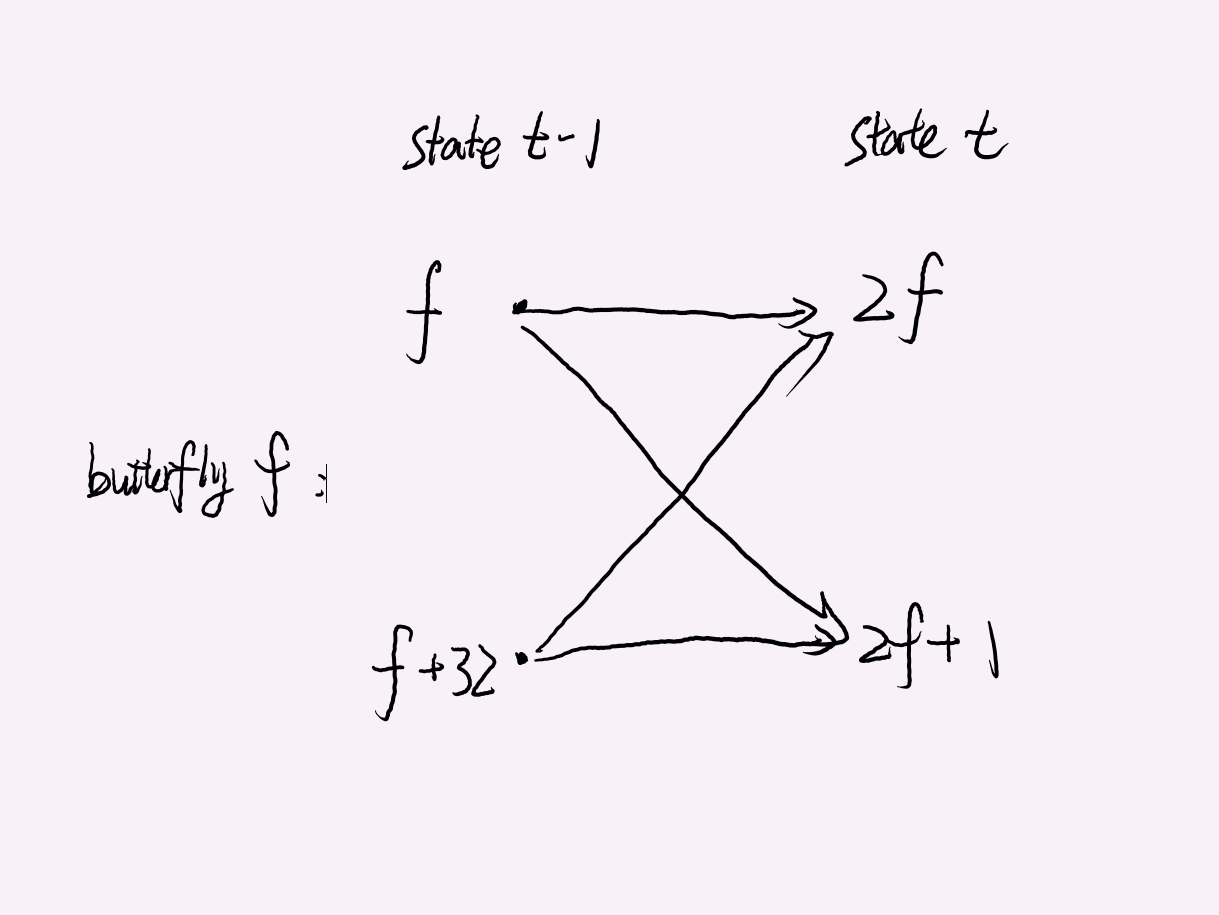 state t-1 state t
f 2f
butterfly f :
f+32 2f+1